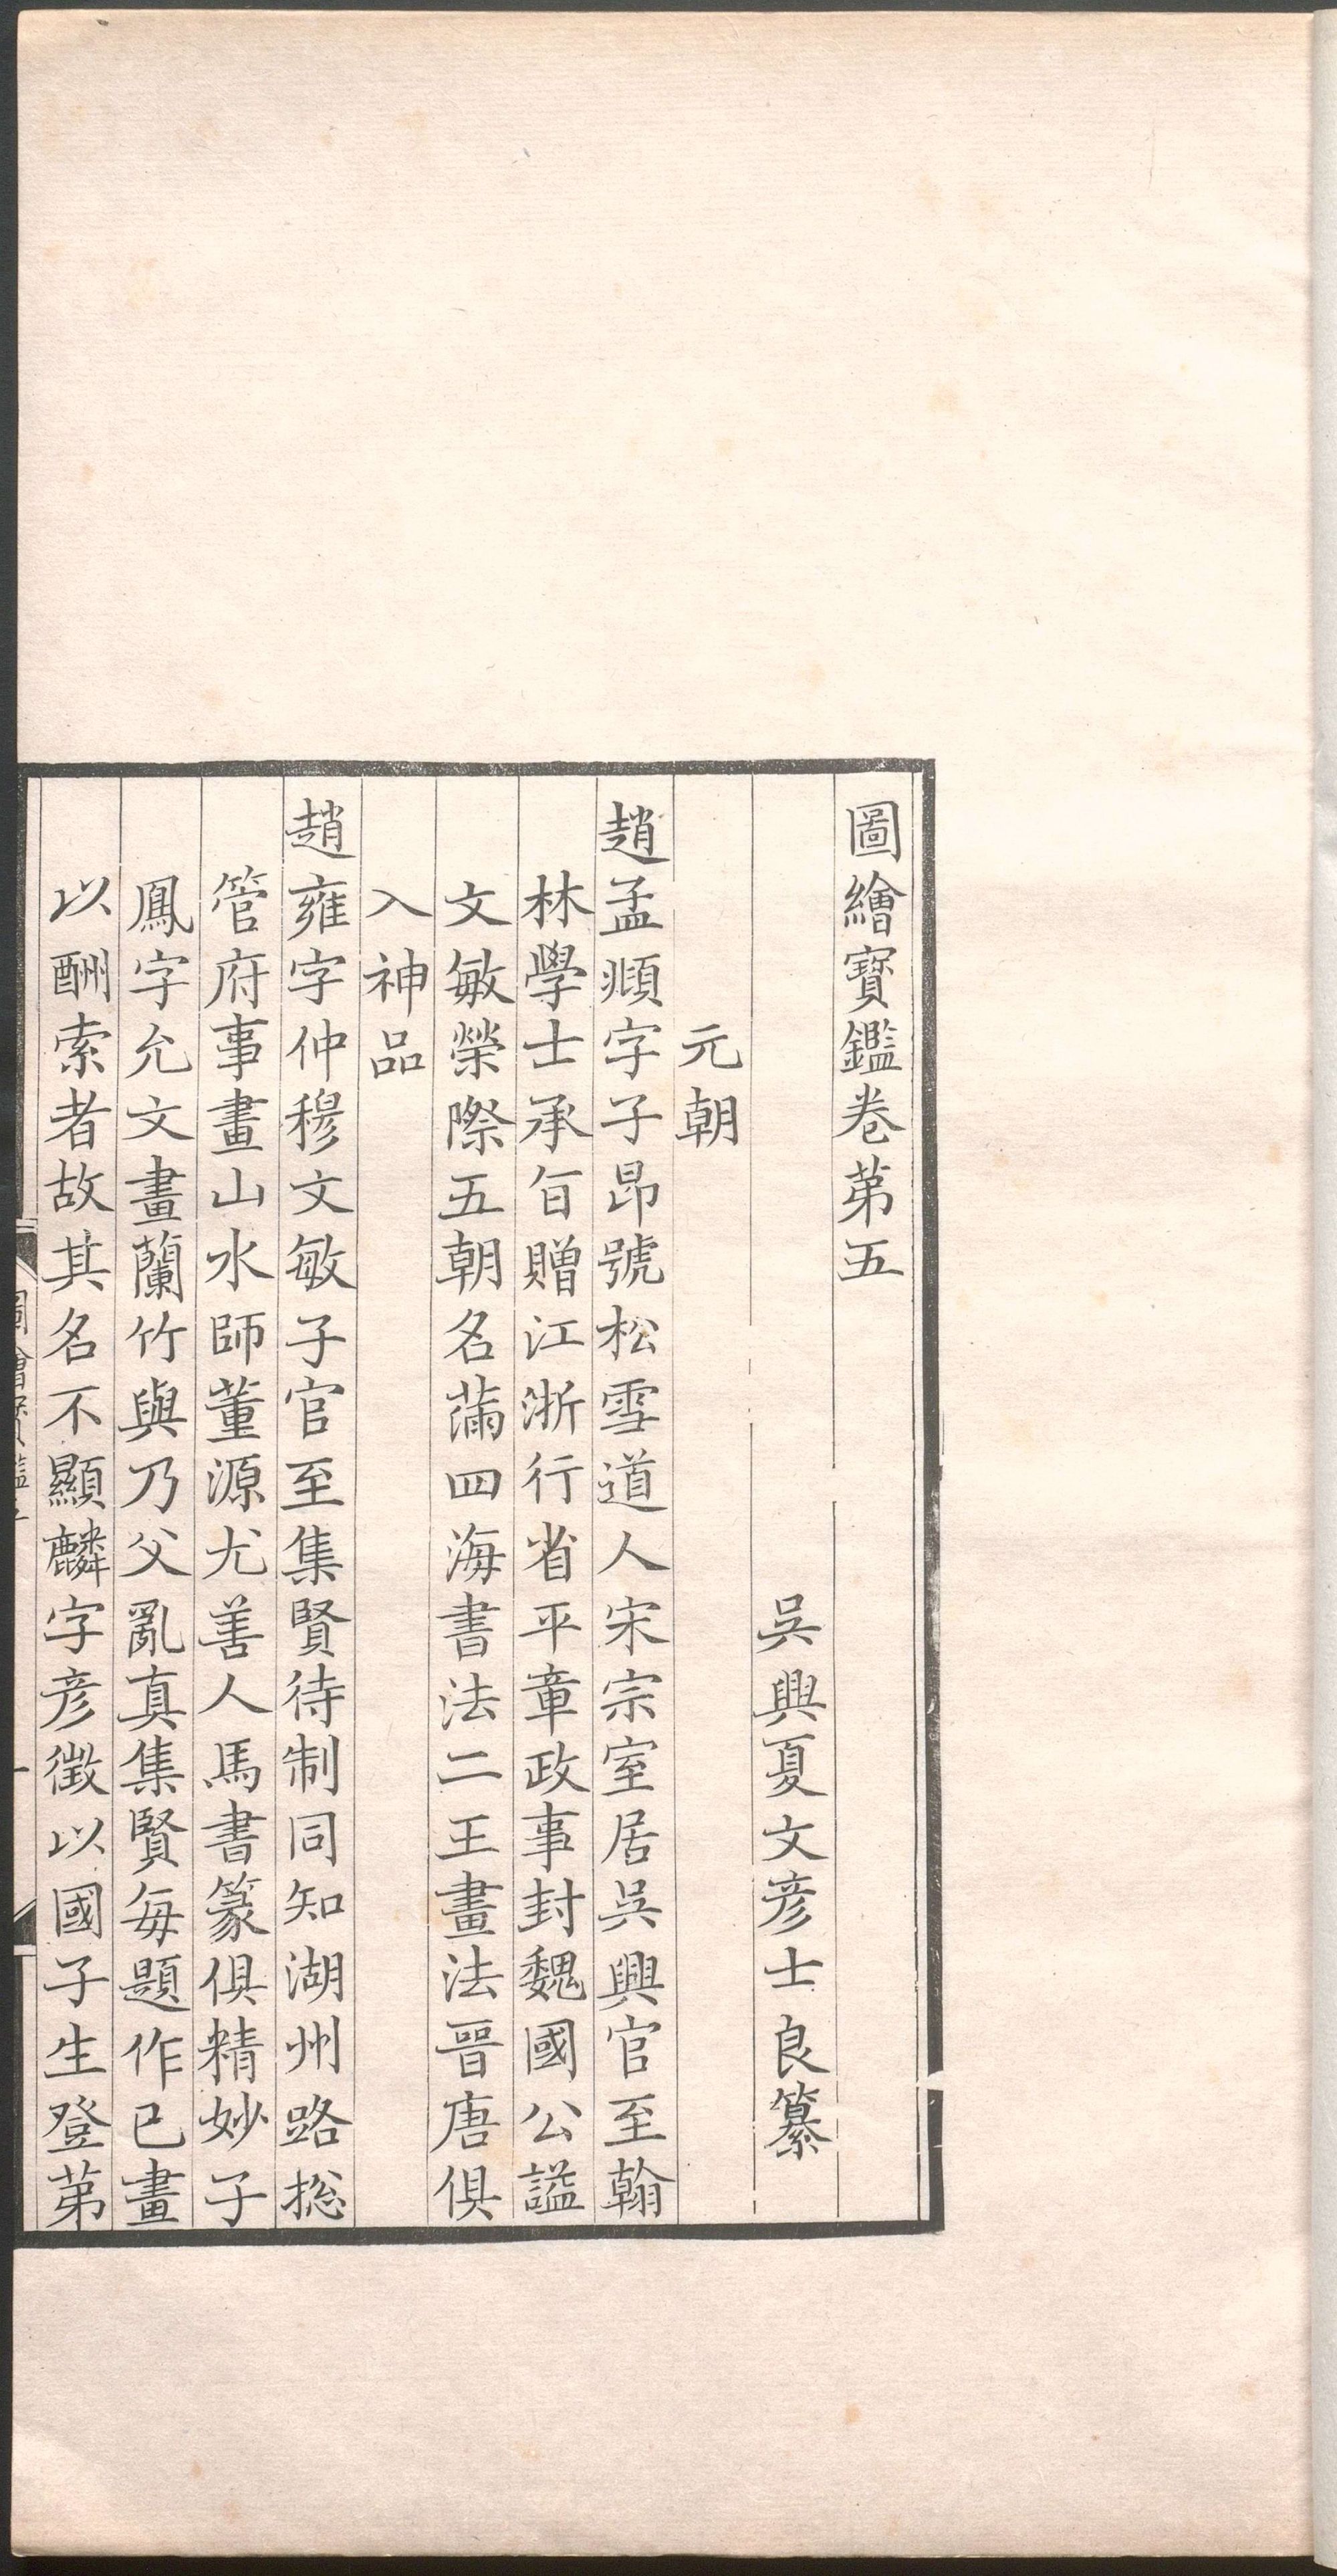 圖繪寶鑑卷第五
吳興夏文彦士良纂
元朝
趙孟頫字子昂號松雪道人宋宗室居吳興官至翰
林學士承㫖贈江浙行省平章政事封魏國公謚
文敏榮際五朝名滿四海書法二王畫法晉唐俱
入神品
趙雍字仲穆文敏子官至集賢待制同知湖州路捴
管府事畫山水師董源尤善人馬書篆俱精妙子
鳳字允文畫蘭竹與乃父亂真集賢每題作已畫
以酬索者故其名不顯麟字彦徵以國子生登第